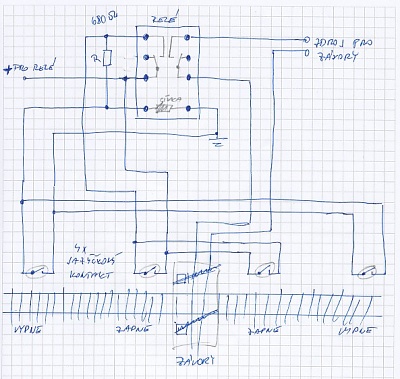 680 Ω
RELÉ
R
ZDROJ PRO
ZÁVORY
+ PRO RELÉ
4x
JAZÝČKOVÝ
KONTAKT
VYPNE
ZAPNE
ZAPNE
VYPNE
ZÁVORY